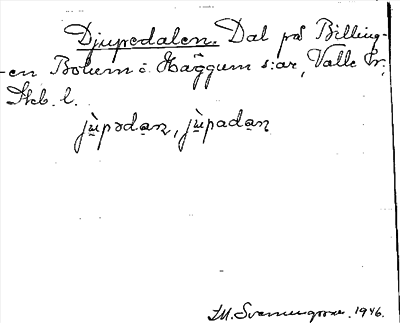 Djupedalen. Dal på Billing-
en Bolum o. Häggum s:ar, Valle hr,
Skb. l.
jùpədaṉ, jùpadaṉ
1946.